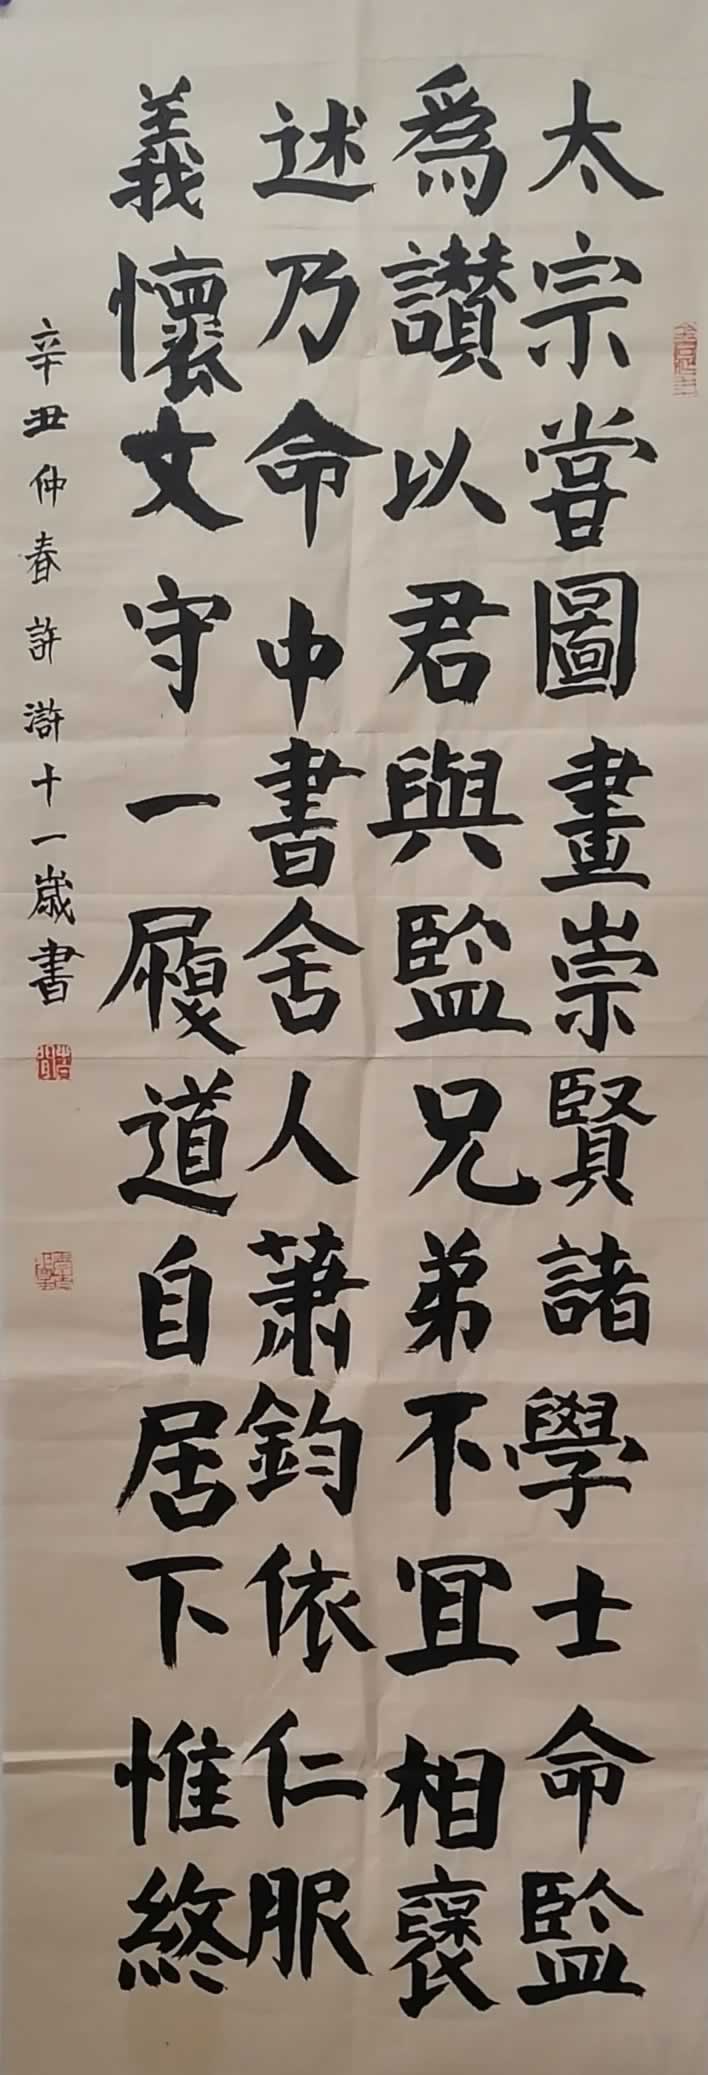 太宗嘗圖畫崇賢諸學士命監
為讃以君與監兄弟不冝相褒
述乃命中書舍人蕭鈞依仁服
義懷文守一履道自居下惟終
辛丑仲春許滸十一歲書